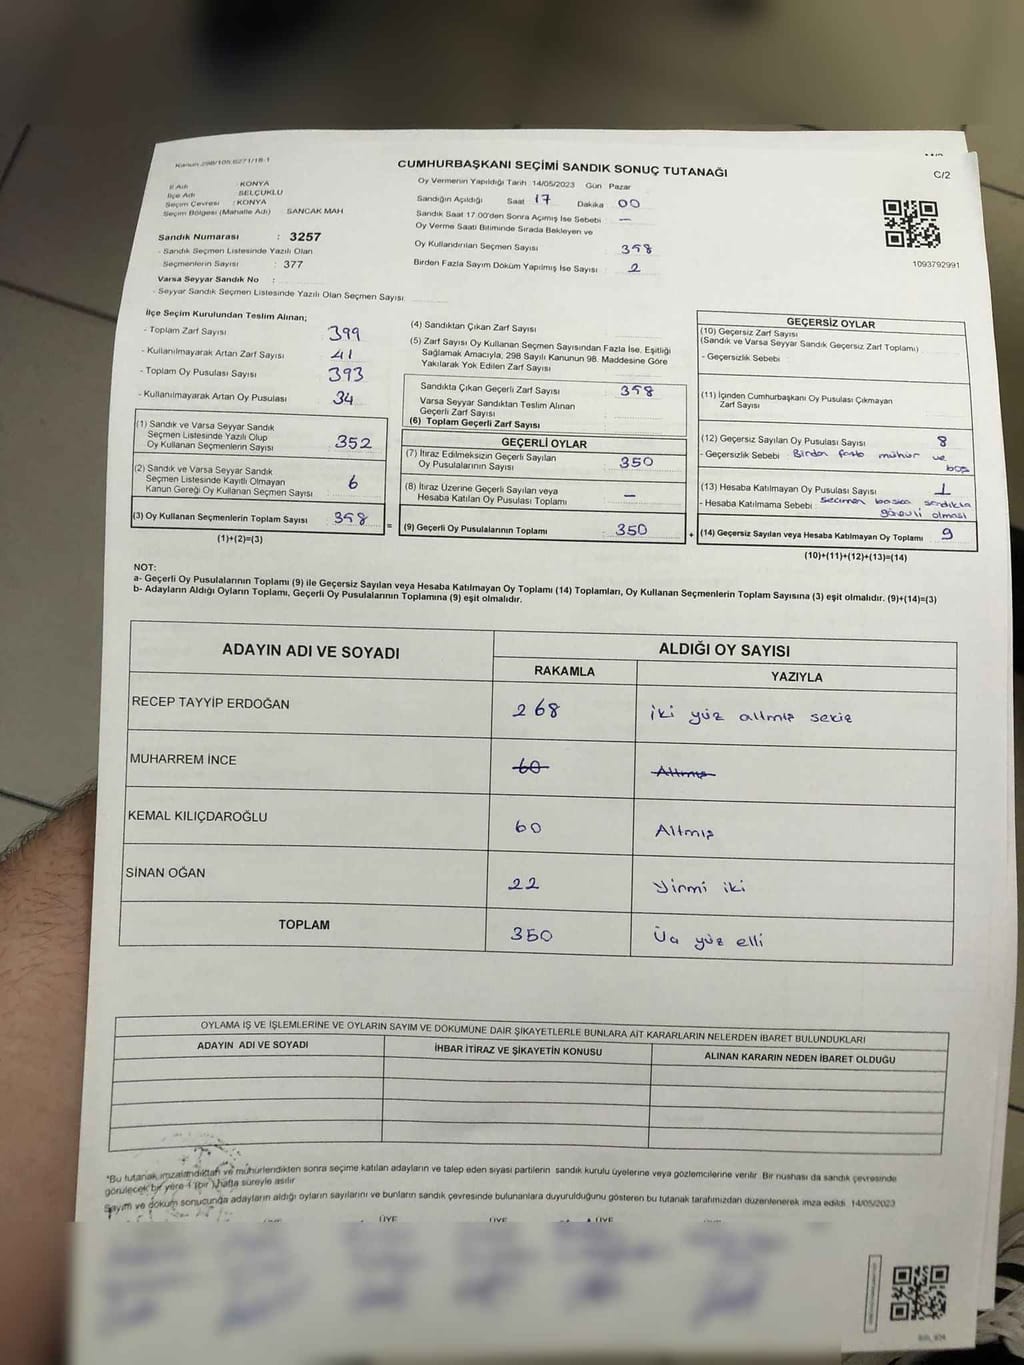 Kanun 298/105,6271/18-1
CUMHURBAŞKANI SEÇİMİ SANDIK SONUÇ TUTANAĞI
C/2
İl Adı : KONYA
İlçe Adı : SELÇUKLU
Seçim Çevresi : KONYA
Seçim Bölgesi (Mahalle Adı) : SANCAK MAH
Sandık Numarası : 3257
- Sandık Seçmen Listesinde Yazılı Olan
Seçmenlerin Sayısı : 377
Varsa Seyyar Sandık No :
- Seyyar Sandık Seçmen Listesinde Yazılı Olan Seçmen Sayısı
Oy Vermenin Yapıldığı Tarih : 14/05/2023 Gün Pazar
Sandığın Açıldığı Saat 17 Dakika 00
Sandık Saat 17.00'den Sonra Açımış İse Sebebi : —
Oy Verme Saati Bitiminde Sırada Bekleyen ve
Oy Kullandırılan Seçmen Sayısı 358
Birden Fazla Sayım Döküm Yapılmış İse Sayısı 2
1093792991
İlçe Seçim Kurulundan Teslim Alınan;
- Toplam Zarf Sayısı 399
- Kullanılmayarak Artan Zarf Sayısı 41
- Toplam Oy Pusulası Sayısı 393
- Kullanılmayarak Artan Oy Pusulası 34
(1) Sandık ve Varsa Seyyar Sandık
Seçmen Listesinde Yazılı Olup
Oy Kullanan Seçmenlerin Sayısı 352
(2) Sandık ve Varsa Seyyar Sandık
Seçmen Listesinde Kayıtlı Olmayan
Kanun Gereği Oy Kullanan Seçmen Sayısı 6
(3) Oy Kullanan Seçmenlerin Toplam Sayısı 358 =
(1)+(2)=(3)
(4) Sandıktan Çıkan Zarf Sayısı
(5) Zarf Sayısı Oy Kullanan Seçmen Sayısından Fazla İse, Eşitliği
Sağlamak Amacıyla, 298 Sayılı Kanunun 98. Maddesine Göre
Yakılarak Yok Edilen Zarf Sayısı
Sandıkta Çıkan Geçerli Zarf Sayısı 358
Varsa Seyyar Sandıktan Teslim Alınan
Geçerli Zarf Sayısı
(6) Toplam Geçerli Zarf Sayısı
GEÇERLİ OYLAR
(7) İtiraz Edilmeksizin Geçerli Sayılan
Oy Pusulalarının Sayısı 350
(8) İtiraz Üzerine Geçerli Sayılan veya
Hesaba Katılan Oy Pusulası Toplamı —
(9) Geçerli Oy Pusulalarının Toplamı 350 +
GEÇERSİZ OYLAR
(10) Geçersiz Zarf Sayısı
(Sandık ve Varsa Seyyar Sandık Geçersiz Zarf Toplamı)
- Geçersizlik Sebebi
(11) İçinden Cumhurbaşkanı Oy Pusulası Çıkmayan
Zarf Sayısı
(12) Geçersiz Sayılan Oy Pusulası Sayısı 8
- Geçersizlik Sebebi Birden fazla mühür ve
boş
(13) Hesaba Katılmayan Oy Pusulası Sayısı 1
- Hesaba Katılmama Sebebi seçmen başka sandıkta
görevli olması
(14) Geçersiz Sayılan veya Hesaba Katılmayan Oy Toplamı 9
(10)+(11)+(12)+(13)=(14)
NOT:
a- Geçerli Oy Pusulalarının Toplamı (9) ile Geçersiz Sayılan veya Hesaba Katılmayan Oy Toplamı (14) Toplamları, Oy Kullanan Seçmenlerin Toplam Sayısına (3) eşit olmalıdır. (9)+(14)=(3)
b- Adayların Aldığı Oyların Toplamı, Geçerli Oy Pusulalarının Toplamına (9) eşit olmalıdır.
ADAYIN ADI VE SOYADI
ALDIĞI OY SAYISI
RAKAMLA YAZIYLA
RECEP TAYYİP ERDOĞAN 268 iki yüz altmış sekiz
MUHARREM İNCE 60 Altmış
KEMAL KILIÇDAROĞLU 60 Altmış
SİNAN OĞAN 22 Yirmi iki
TOPLAM 350 Üç yüz elli
OYLAMA İŞ VE İŞLEMLERİNE VE OYLARIN SAYIM VE DÖKÜMÜNE DAİR ŞİKAYETLERLE BUNLARA AİT KARARLARIN NELERDEN İBARET BULUNDUKLARI
ADAYIN ADI VE SOYADI İHBAR İTİRAZ VE ŞİKAYETİN KONUSU ALINAN KARARIN NEDEN İBARET OLDUĞU
*Bu tutanak imzalandıktan ve mühürlendikten sonra seçime katılan adayların ve talep eden siyasi partilerin sandık kurulu üyelerine veya gözlemcilerine verilir Bir nüshası da sandık çevresinde
görülecek bir yere 1 (bir) hafta süreyle asılır
Sayım ve döküm sonucunda adayların aldığı oyların sayılarını ve bunların sandık çevresinde bulunanlara duyurulduğunu gösteren bu tutanak tarafımızdan düzenlenerek imza edildi 14/05/2023
ÜYE ÜYE ÜYE